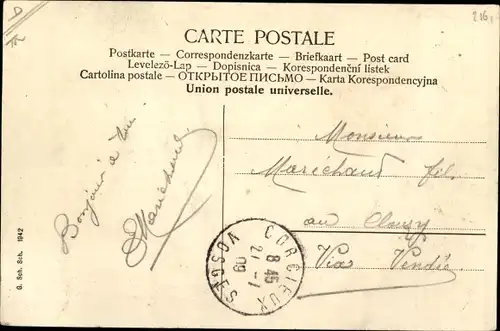 216,
CARTE POSTALE
Postkarte — Correspondenzkarte — Briefkaart — Post card
Levelező-Lap — Dopisnica — Korespondenční listek
Cartolina postale — ОТКРЫТОЕ ПИСЬМО — Karta Korespondencyjna
Union postale universelle.
Bonjour à tous
Marichaud
Monsieur
Marichaud fils
au
Via Vendée
CORCIEUX
8 45
21 - 1
09
VOSGES
G. Sch. Sch. 1942